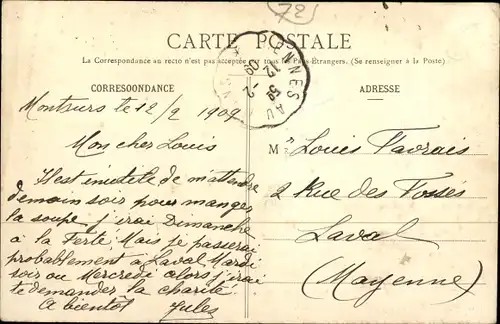 72
CARTE POSTALE
La Correspondance au recto n'est pas acceptée par tous les Pays Étrangers. (Se renseigner à la Poste)
CORRESOONDANCE
Montsurs le 12/2 1909
Mon cher Louis
Il est inutile de m'attendre
demain soir pour manger
la soupe, j'irai Dimanche
à la Ferté. Mais je passerai
probablement à Laval Mardi
soir ou Mercredi alors j'irai
te demander la charité
A bientôt Jules
RENNES AU
12 -2
09
ADRESSE
M Louis Favrais
2 Rue des Fossés
Laval
(Mayenne)